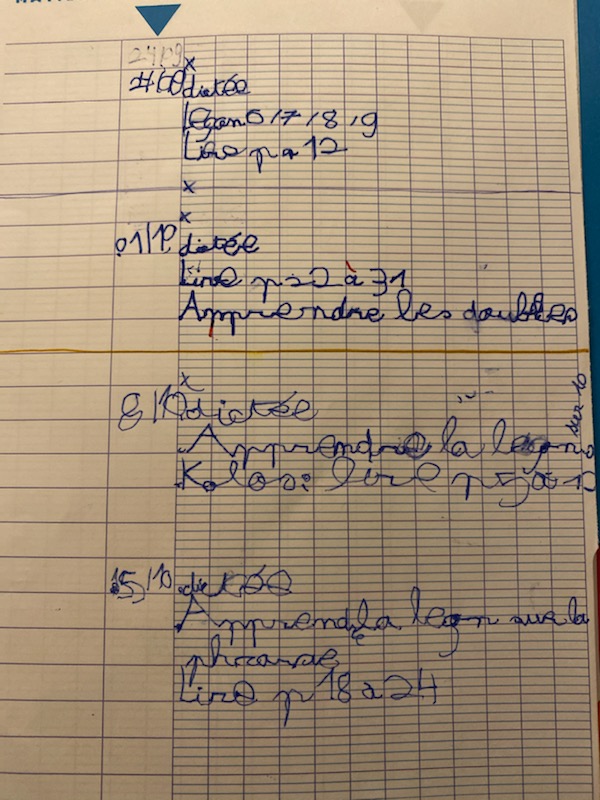 24/09
x
dictée
Leçon 6 / 7 / 8 / 9
Lire p à 12
x
x
01/10 dictée
Lire p 22 à 31
Apprendre les doubles
x
8/10 dictée
Apprendre la leçon
sur 10
Kolos: lire p 5 à 12
15/10 dictée
Apprendre la leçon sur la
phrase
Lire p 18 à 24